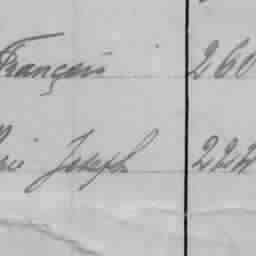 François 260
Joseph 222